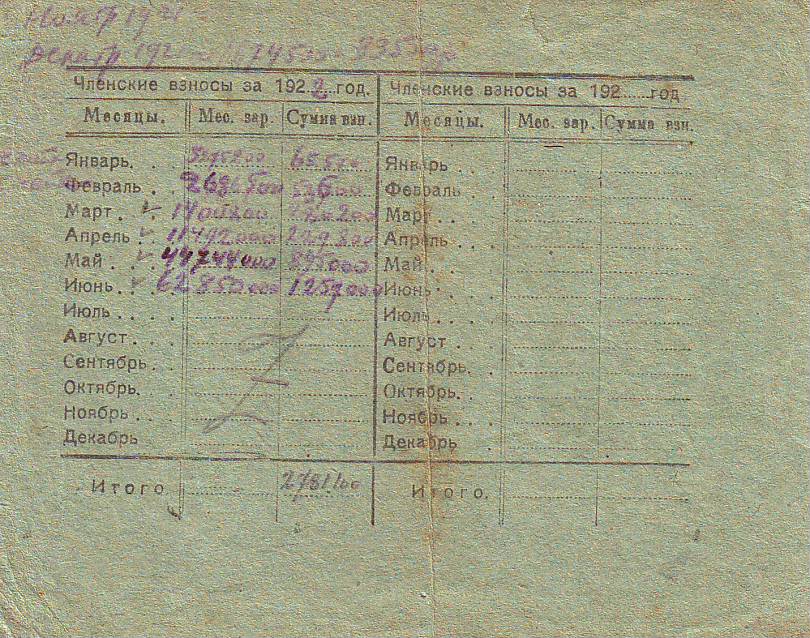 Членские взносы за 1922 год. Членские взносы за 192......год
Месяцы. Мес. зар. Сумма взн. Месяцы. Мес. зар. Сумма взн.
Январь. . . Январь . .
Февраль . 2686500 Февраль .
Март . Март . .
Апрель . 11492000 229800 Апрель . . .
Май . . 44744000 895000 Май . . .
Июнь . . 62850000 1257000 Июнь . . .
Июль . . . Июль . . .
Август . . . Август . . .
Сентябрь . . Сентябрь. .
Октябрь. . Октябрь. .
Ноябрь . . Ноябрь . .
Декабрь Декабрь
Итого 2781100 Итого.